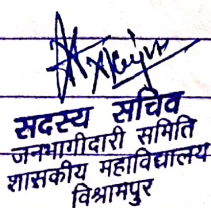 सदस्य सचिव
जनभागीदारी समिति
शासकीय महाविद्यालय
विश्रामपुर